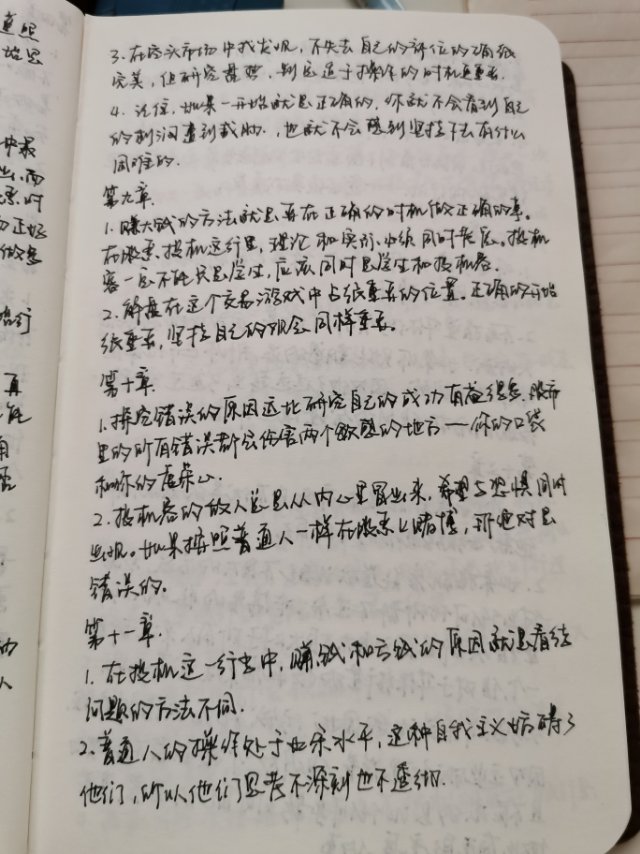 3. 在空头市场中找发现，不失去自己的部位的确很
完美，但研究盘势，判定适于操作的时机更重要.
4. 记住，如果一开始就是正确的，你就不会看到自己
的利润遭到威胁，也就不会感到坚持下去有什么
困难的.
第九章.
1. 赚大钱的方法就是要在正确的时机做正确的事。
在股票、投机这行里，理论和实际必须同时发展。投机
客一定不能只是学生，应该同时是学生和投机客.
2. 解盘在这个交易游戏中占很重要的位置。正确的开始
很重要，坚持自己的观念同样重要。
第十章.
1. 探究错误的原因远比研究自己的成功有益得多. 股市
里的所有错误都会伤害两个敏感的地方——你的口袋
和你的虚荣心.
2. 投机客的敌人总是从内心里冒出来，希望与恐惧同时
出现。如果按照普通人一样在股票上赌博，那绝对是
错误的.
第十一章.
1. 在投机这一行当中，赚钱和亏钱的原因就是看待
问题的方法不同.
2. 普通人的操作处于业余水平，这种自我主义妨碍了
他们，所以他们思考不深刻也不透彻.
道照
中最
出，而
票时
的正好
做息
行
再
能
角